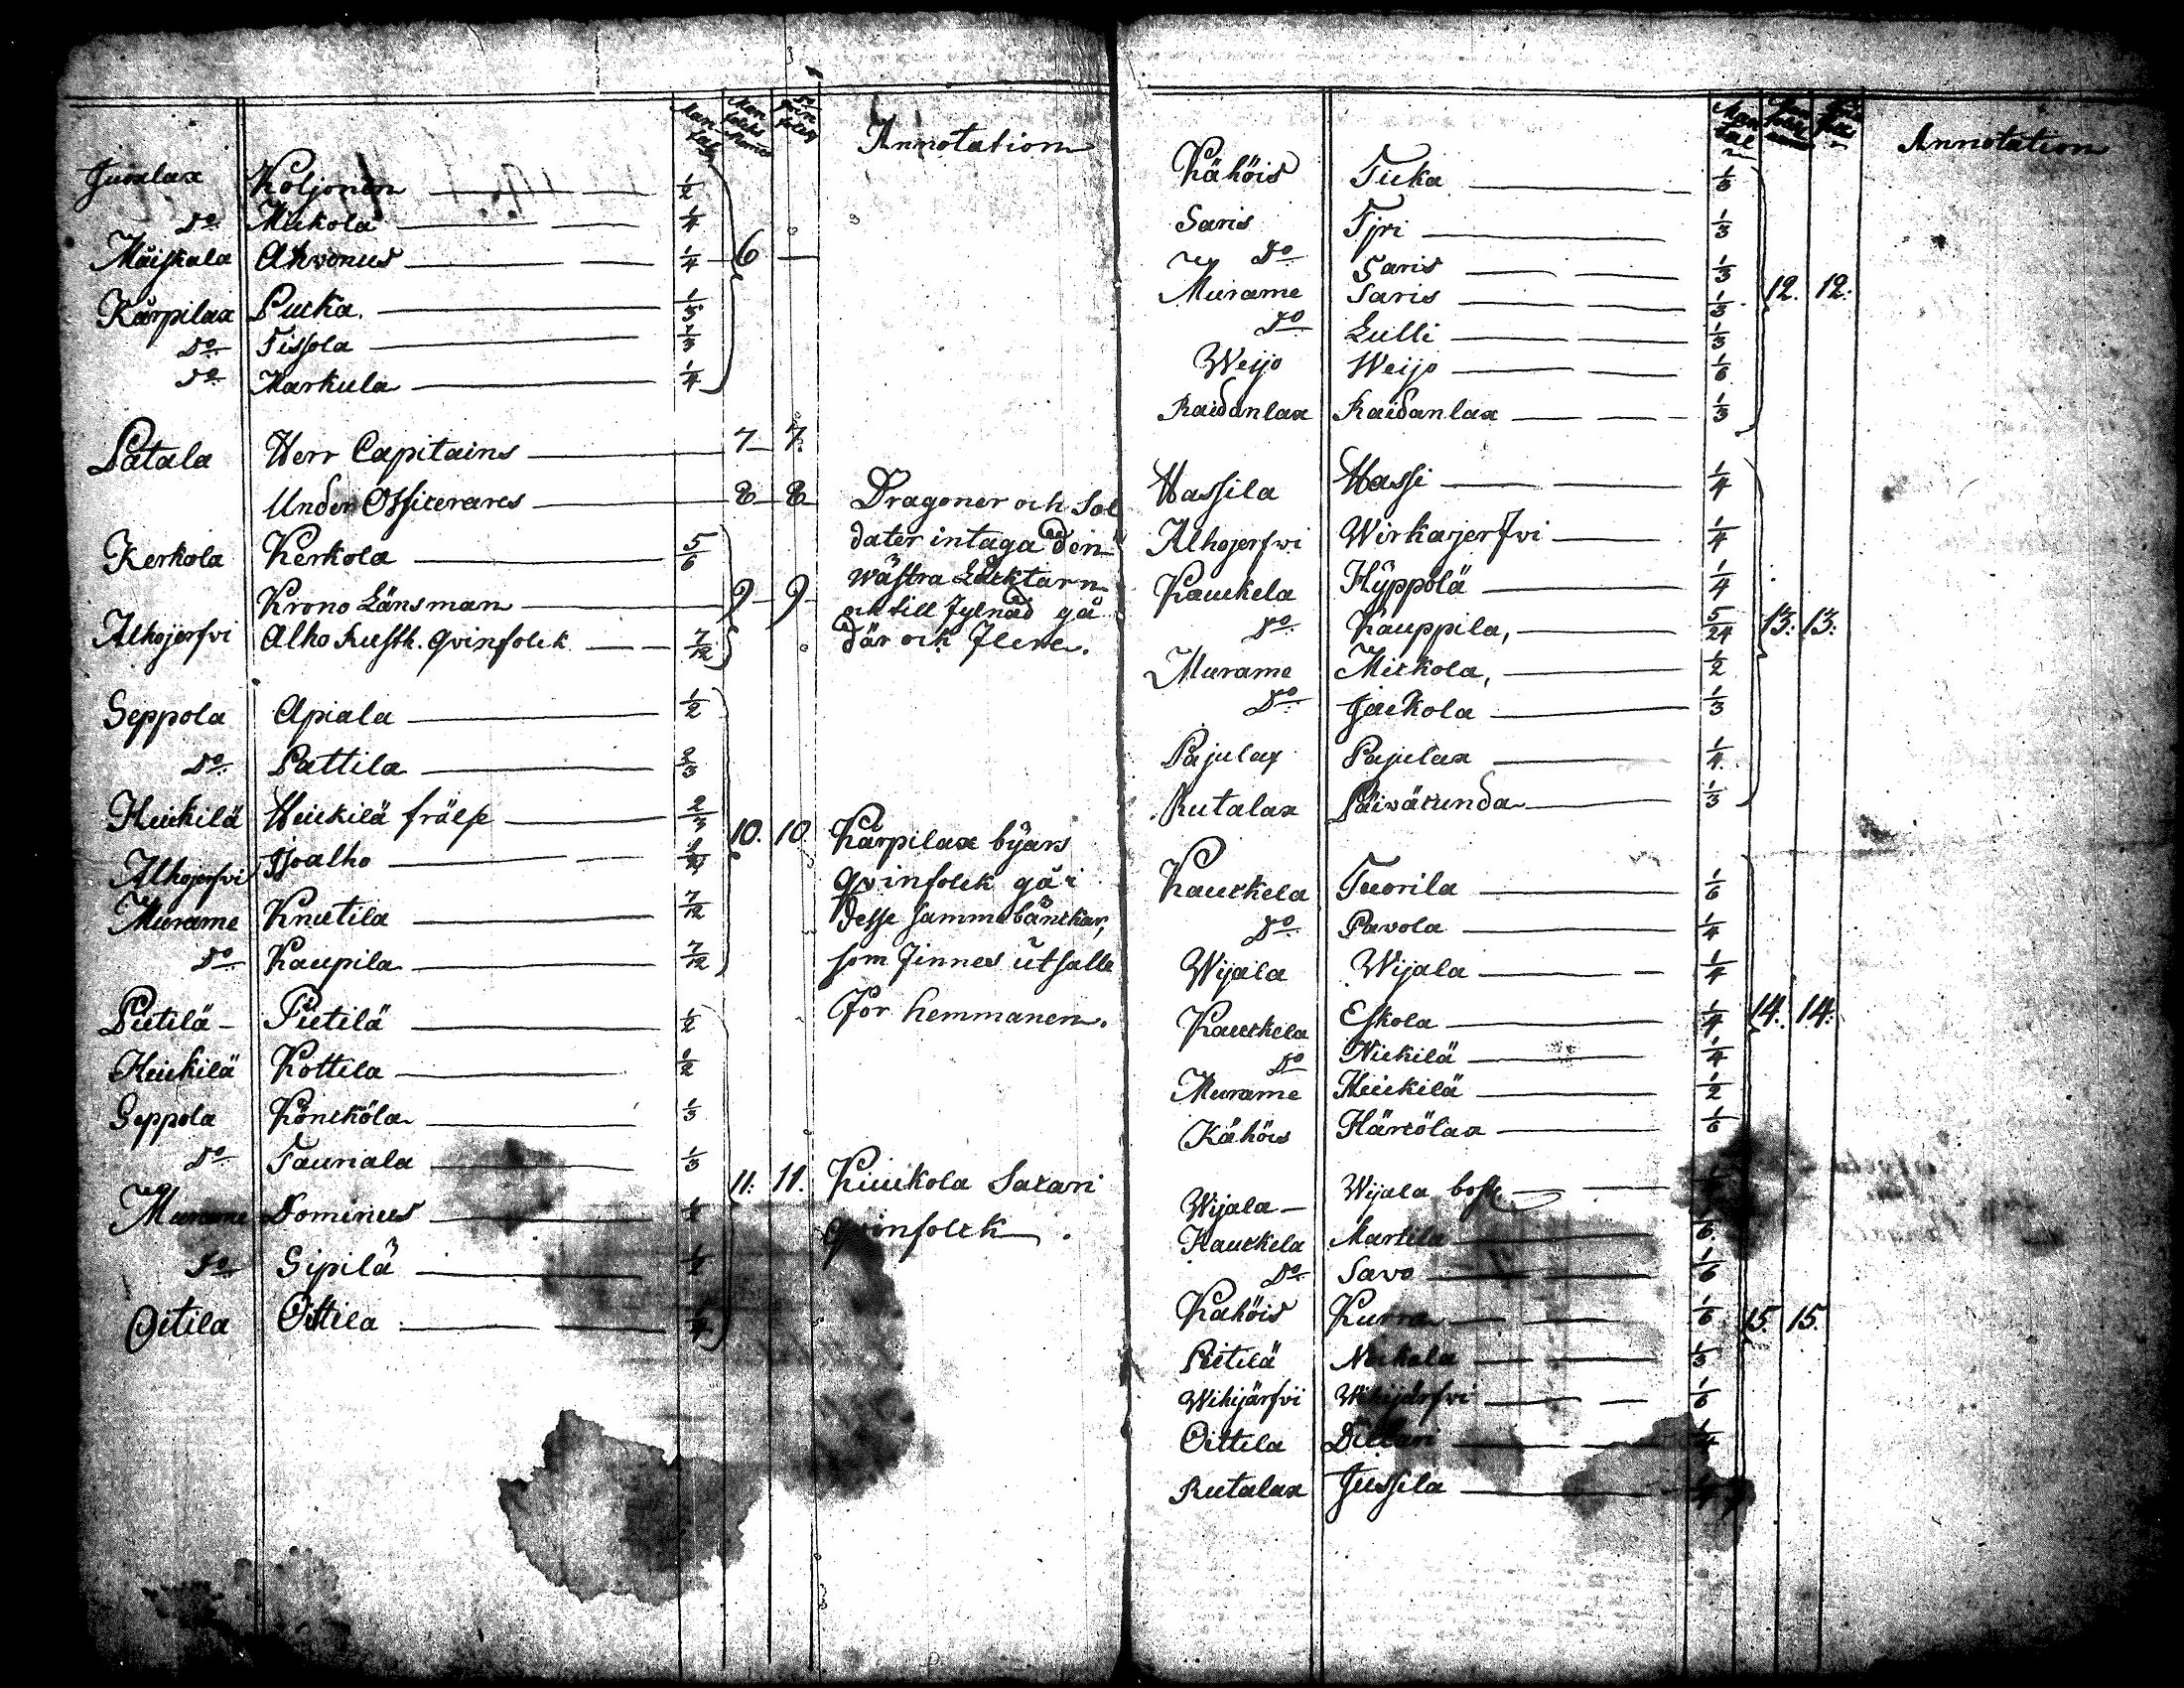 3
Mantal Manfolks Rum Qvinfolk Annotation
Juoxlax Koljonen 1/2
Do Mickola 1/4
Mäiskala Ahvonus 1/4 6
Kärpilax Pucka. 1/3
Do Tissola 1/3
Do Markula 1/4
Patala Herr Capitains 7 7.
Under Officerares 8 8
Dragoner och Sol
dater intaga den
wästra Läcktarn
och till fylnad gå
där ock flere.
Kerkola Kerkola 5/6
Krono Länsman 9 9
Alhojerfvi Alho Rusth. qvinfolck 7/12
Seppola Apiala 1/2
Do Pattila 2/3
Heickilä Heickilä frälse 2/3
10. 10.
Alhojerfvi Isoalho
Murame Knutila 7/12
Do Kaupila 7/12
Kärpilax byars
qvinfolck gå i
desse samma bänckar,
som finnes utsatte
för hemmanen.
Pietilä Pietilä 1/2
Heickilä Kottila 1/2
Seppola Könckölä 1/3
Do Tauriala 1/3
11. 11. Kuckola Satari
qvinfolck.
Murame Dominus
Do Sipilä
Oitila Oittila 1/4
Mantal Annotation
Kähöis Tuka 1/3
Saris Tyri 1/3
Do Saris 1/3
Murame Saris 1/3 12. 12.
Do Lulli 1/3
Weijo Weijo 1/6
Raidanlax Raidanlax 1/3
Hassila Hassi 1/4
Alhojerfvi Wirkajerfvi 1/4
Kauckela Hyppölä 1/4
Do Kauppila, 5/24 13. 13.
Murame Mickola, 1/2
Do Jackola 1/3
Pajulax Pajulax 1/4
Rutalax Päiväcunda 1/3
Kauckela Tuorila 1/6
Do Pavola 1/4
Wijala Wijala 1/4
Kauckela Eskola 1/4 14. 14.
Do Nickilä 1/4
Murame Heickilä 1/2
Kähöis Härcölax 1/6
Wijala Wijala
Kauckela Martila 1/6
Do Savo 1/6
Kähöis Kurra 1/6 15. 15.
Pietilä Nickala 1/3
Wihijärfvi Wihijärfvi 1/6
Oittila 1/4
Rutalax Jussila